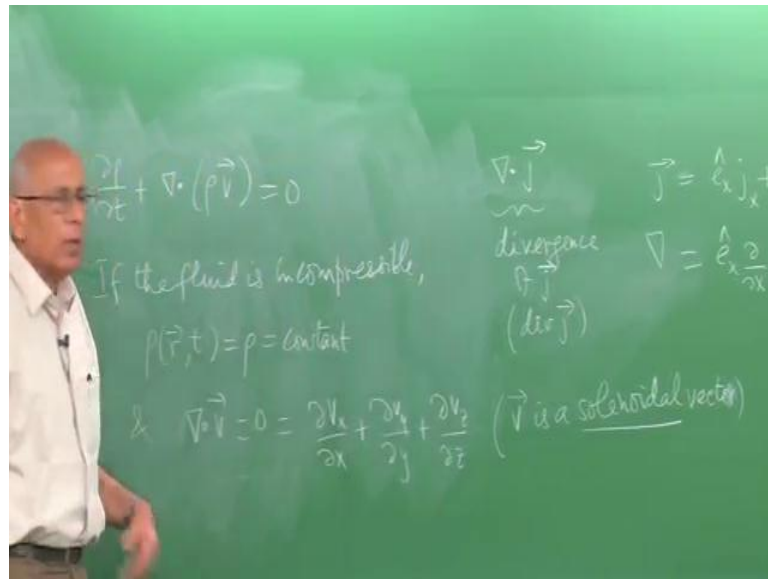 ∂ρ/∂t + ∇·(ρv⃗) = 0
If the fluid is incompressible,
ρ(r⃗,t) = ρ = constant
& ∇·v⃗ = 0 = ∂vx/∂x + ∂vy/∂y + ∂vz/∂z (v⃗ is a solenoidal vector)
∇·j⃗
divergence
of j⃗
(div j⃗)
j⃗ = êx jx +
∇ = êx ∂/∂x